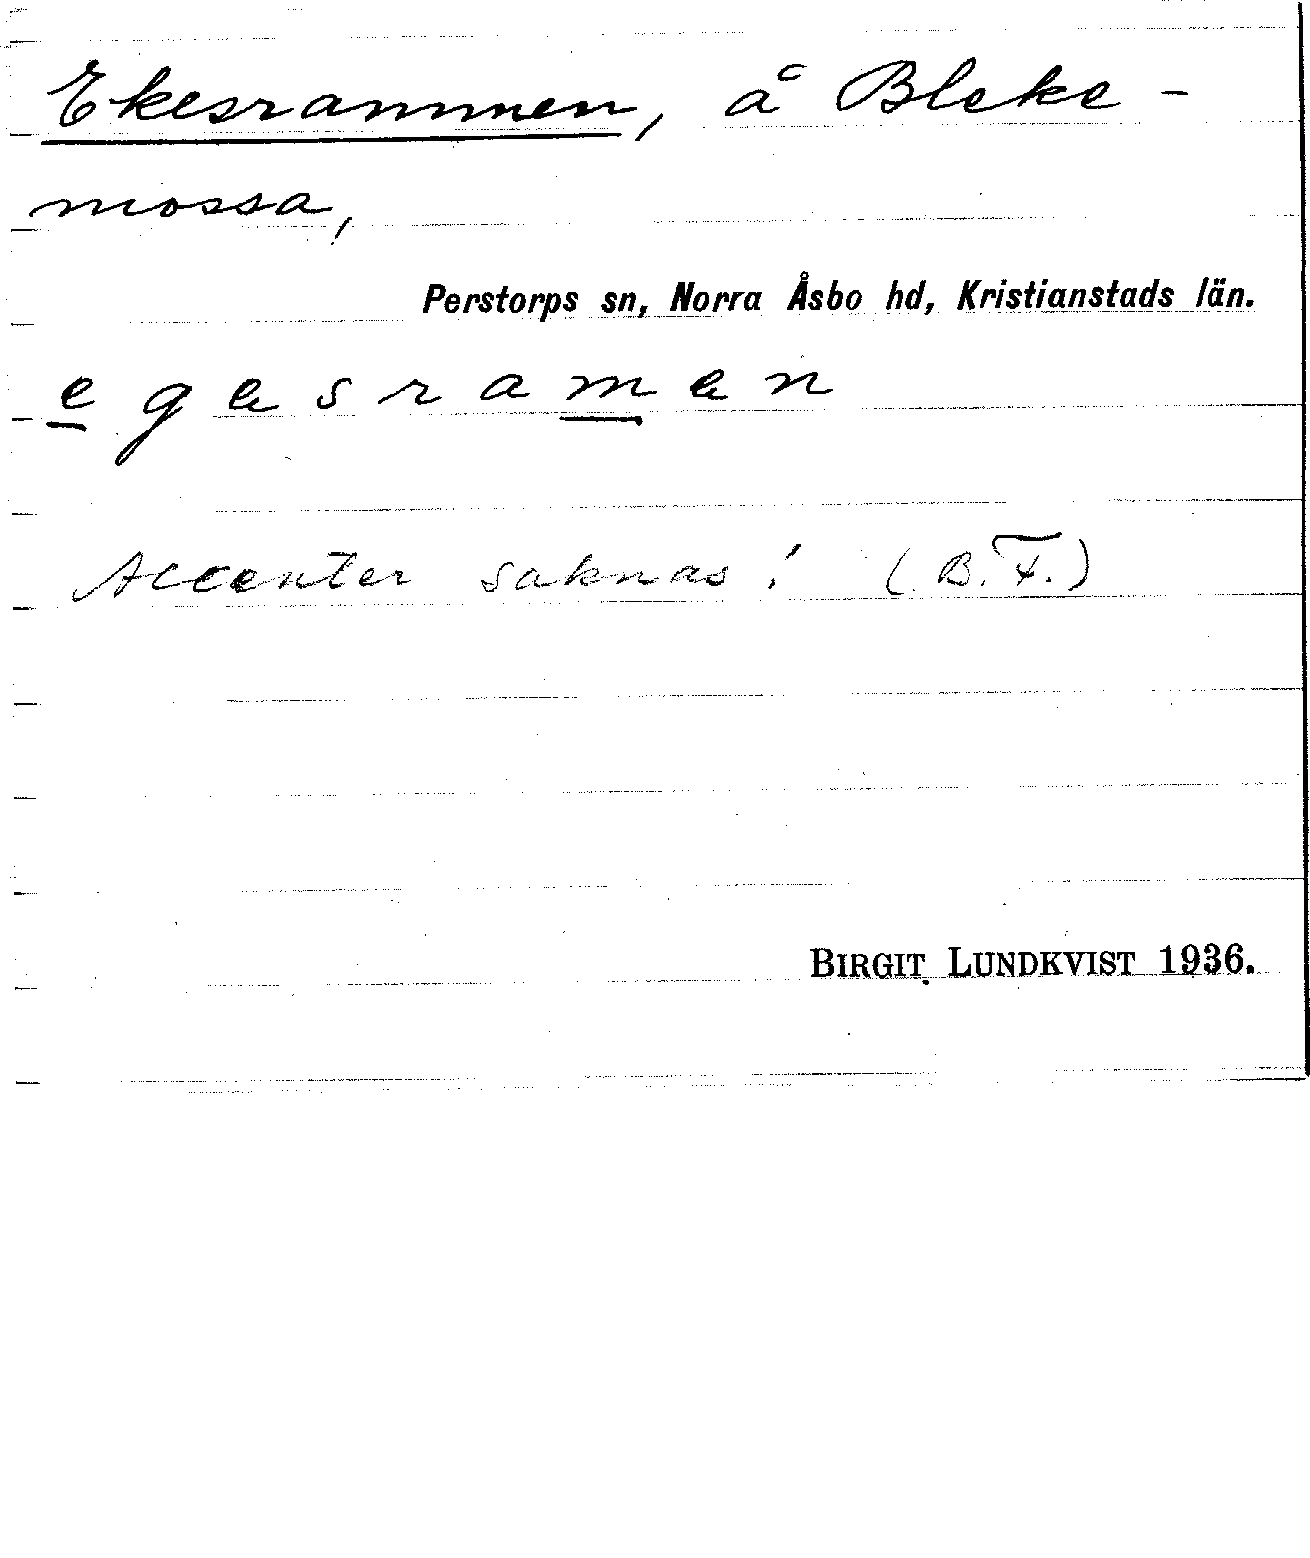 Ekesrammen, å Bleke-
mossa,
Perstorps sn, Norra Åsbo hd, Kristianstads län.
e g e s r a m e n
Accenter saknas! (B. F.)
BIRGIT LUNDKVIST 1936.